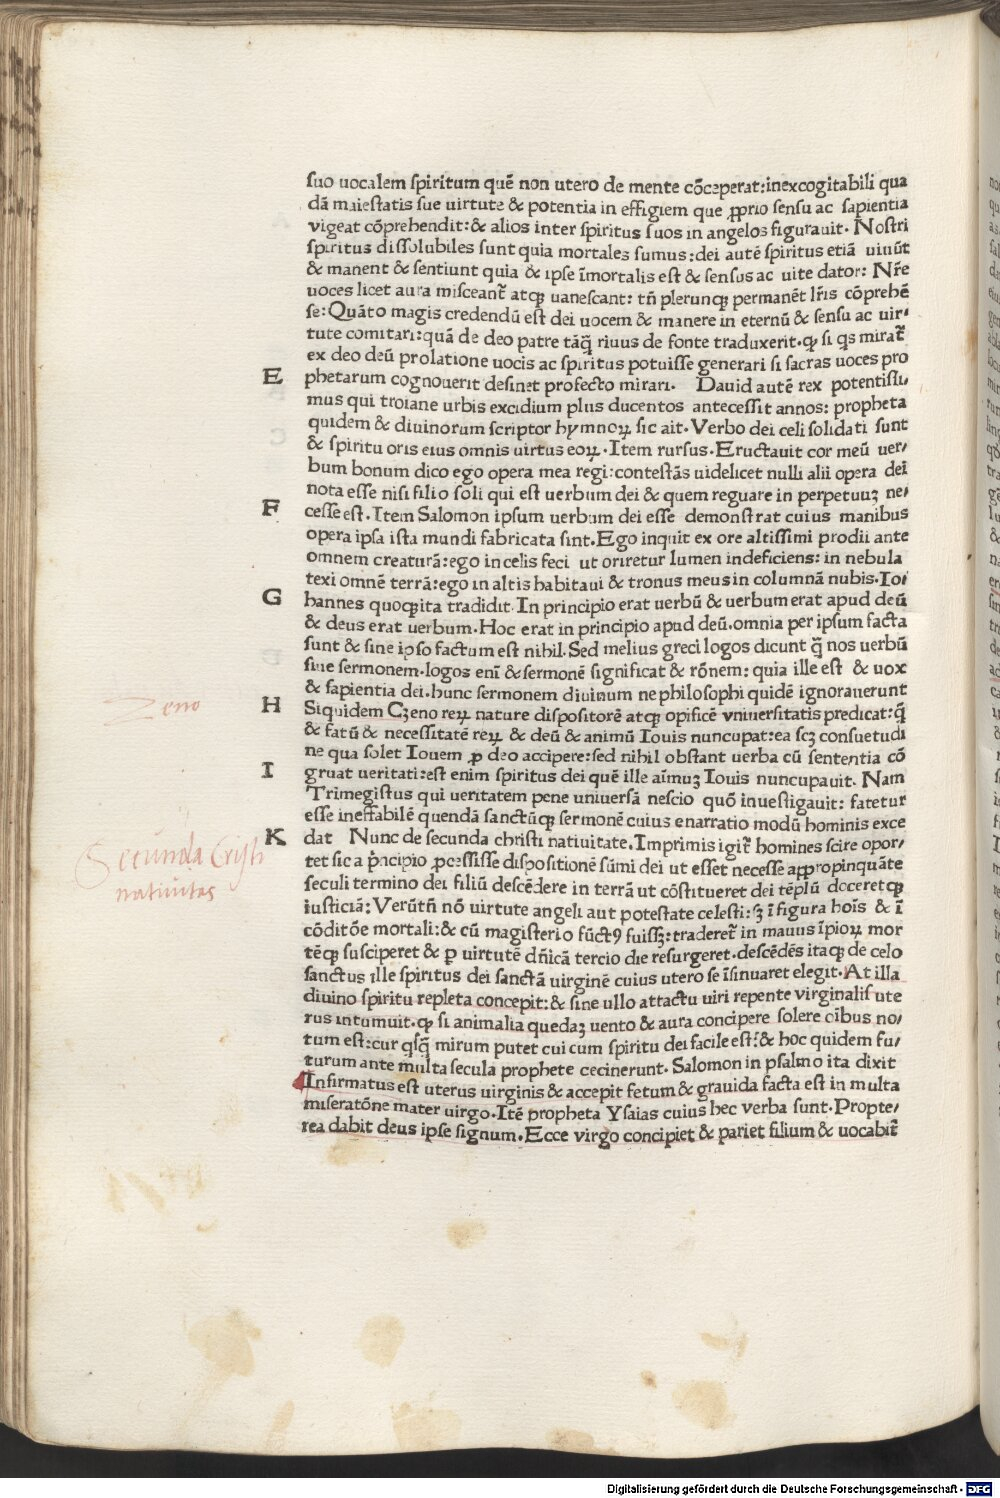 suo uocalem spiritum quē non utero de mente cōceperat:inexcogitabili qua
dā maiestatis sue uirtute & potentia in effigiem que ꝓprio sensu ac sapientia
vigeat cōprehendit:& alios inter spiritus suos in angelos figurauit. Nostri
spiritus dissolubiles sunt quia mortales sumus:dei autē spiritus etiā uiuūt
& manent & sentiunt quia & ipse īmortalis est & sensus ac uite dator: Nr̄e
uoces licet aura misceant᷑ atqꝫ uanescant: tn̄ plerunqꝫ permanēt lr̄is cōprehē
se: Quāto magis credendū est dei uocem & manere in eternū & sensu ac uir/
tute comitari:quā de deo patre tāq̄ riuus de fonte traduxerit.ꝙ si q̄s mirat᷑
ex deo deū prolatione uocis ac spiritus potuisse generari si sacras uoces pro
E phetarum cognouerit desinet profecto mirari. Dauid autē rex potentissi/
mus qui troiane urbis excidium plus ducentos antecessit annos: propheta
quidem & diuinorum scriptor hymnoꝝ sic ait. Verbo dei celi solidati sunt
& spiritu oris eius omnis uirtus eoꝝ. Item rursus. Eructauit cor meū uer/
bum bonum dico ego opera mea regi:contestās uidelicet nulli alii opera dei
nota esse nisi filio soli qui est uerbum dei & quem reguare in perpetuuꝫ ne/
F cesse est. Item Salomon ipsum uerbum dei esse demonstrat cuius manibus
opera ipsa ista mundi fabricata sint. Ego inquit ex ore altissimi prodii ante
omnem creaturā:ego in celis feci ut oriretur lumen indeficiens: in nebula
texi omnē terrā:ego in altis habitaui & tronus meus in columnā nubis. Io/
G hannes quoqꝫ ita tradidit. In principio erat uerbū & uerbum erat apud deū
& deus erat uerbum. Hoc erat in principio apud deū.omnia per ipsum facta
sunt & sine ipso factum est nihil. Sed melius greci logos dicunt q̄ nos uerbū
siue sermonem.logos enī & sermonē significat & rōnem: quia ille est & uox
& sapientia dei.hunc sermonem diuinum ne philosophi quidē ignorauerunt
Zeno
H Siquidem Cꝫeno reꝝ nature dispositorē atqꝫ opificē vniuersitatis predicat:q̄
& fatū & necessitatē reꝝ & deū & animū Iouis nuncupat:ea scꝫ consuetudi
ne qua solet Iouem ꝓ deo accipere:sed nihil obstant uerba cū sententia cō
I gruat ueritati:est enim spiritus dei quē ille aīmuꝫ Iouis nuncupauit. Nam
Trimegistus qui ueritatem pene uniuersā nescio quō inuestigauit: fatetur
esse ineffabilē quendā sanctūqꝫ sermonē cuius enarratio modū hominis exce
Secunda Cristi
natiuitas
K dat Nunc de secunda christi natiuitate. Imprimis igit᷑ homines scire opor/
tet sic a p̄ncipio ꝓcessisse dispositionē sūmi dei ut esset necesse appropinquāte
seculi termino dei filiū descēdere in terrā ut cōstitueret dei tēplū doceretqꝫ
iusticiā: Verūtn̄ nō uirtute angeli aut potestate celesti:sꝫ ī figura hoīs & ī
cōditōe mortali:& cū magisterio fūctꝰ fuissꝫ:traderet᷑ in manus īpioꝝ mor
tēqꝫ susciperet & ꝑ uirtutē dn̄icā tercio die resurgeret.descēdēs itaqꝫ de celo
sanctus ille spiritus dei sanctā uirginē cuius utero se īsinuaret elegit. At illa
diuino spiritu repleta concepit:& sine ullo attactu uiri repente virginalis ute
rus intumuit.ꝙ si animalia quedaꝫ uento & aura concipere solere cībus no/
tum est:cur qsq̄ mirum putet cui cum spiritu dei facile est:& hoc quidem fu/
turum ante multa secula prophete cecinerunt. Salomon in psalmo ita dixit
Infirmatus est uterus uirginis & accepit fetum & grauida facta est in multa
miseratōne mater uirgo. Itē propheta Ysaias cuius hec verba sunt. Propte/
rea dabit deus ipse signum. Ecce virgo concipiet & pariet filium & uocabit᷑
Digitalisierung gefördert durch die Deutsche Forschungsgemeinschaft - DFG